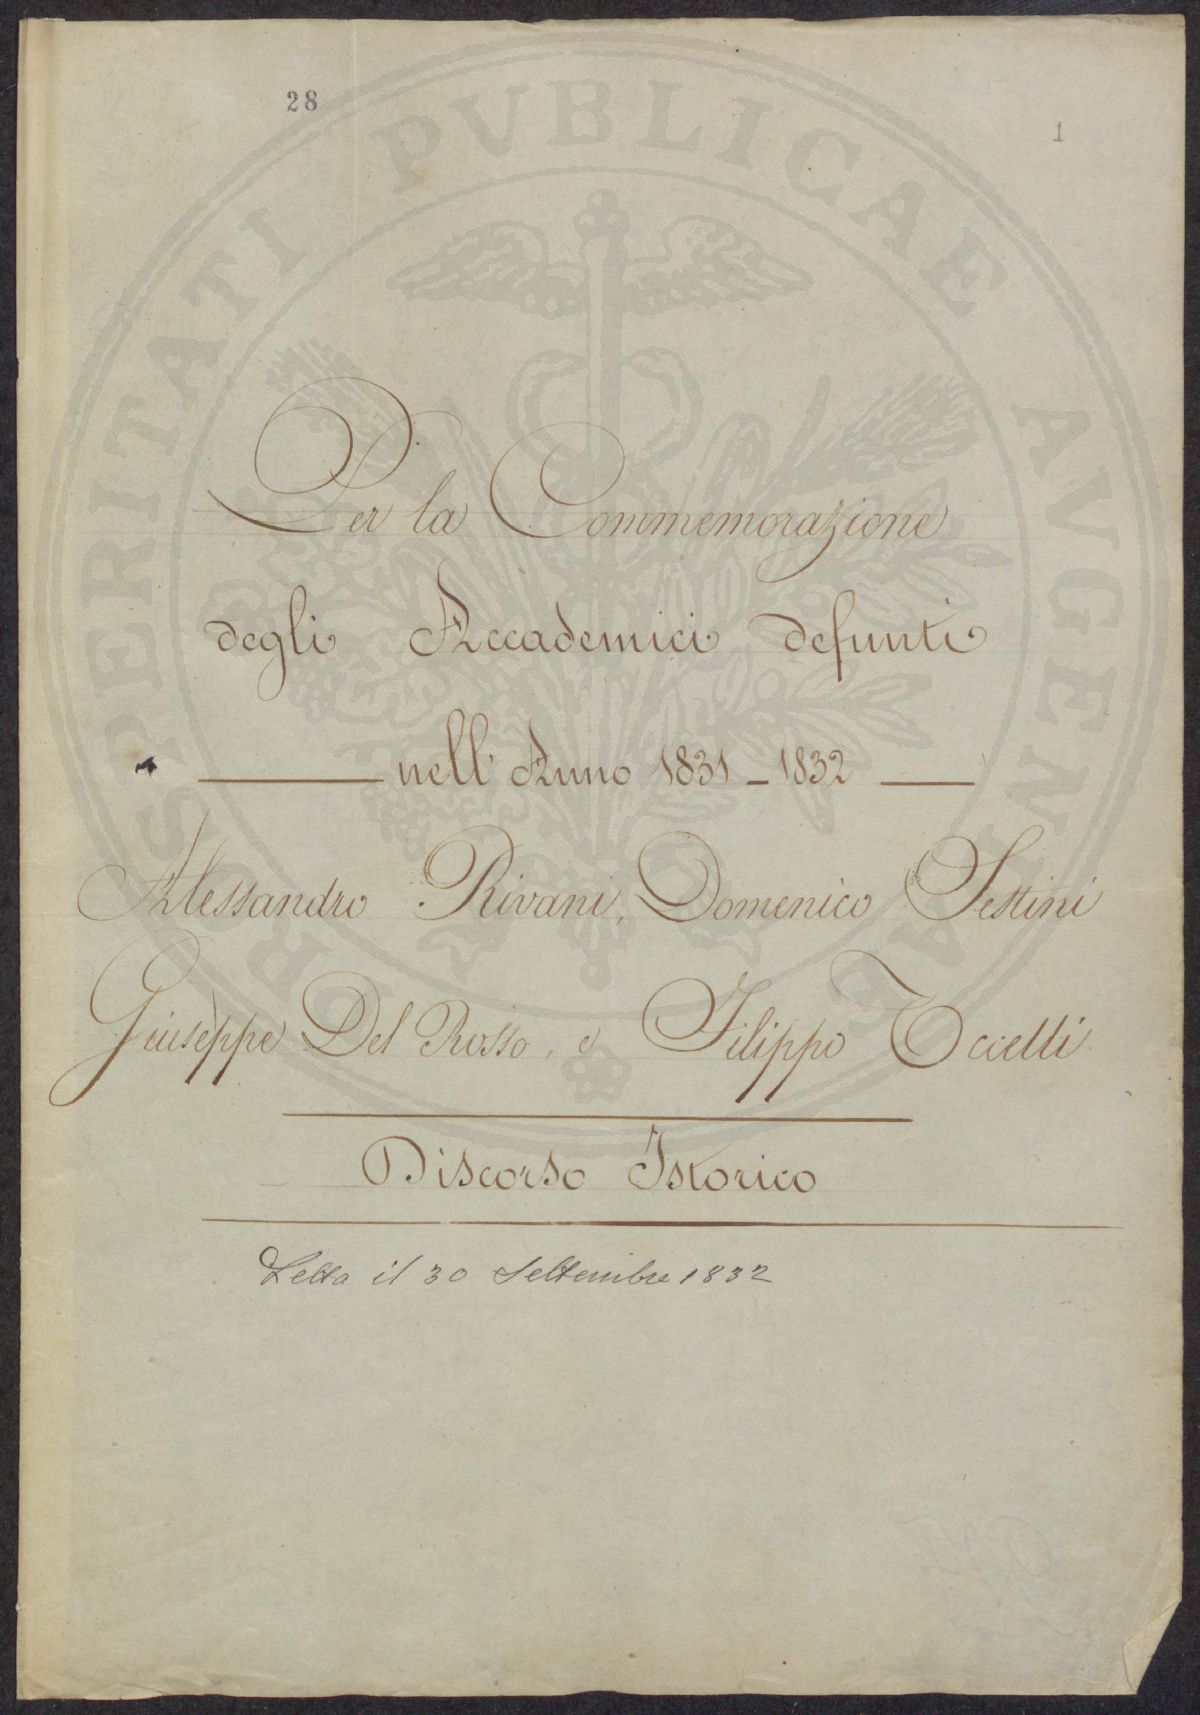 28
1
PROSPERITATI PVBLICAE AVGENDAE
Per la Commemorazione
degli Accademici defunti
nell' Anno 1831 - 1832
Alessandro Rivani, Domenico Sestini
Giuseppe Del Rosso, e Filippo Uccelli
Discorso Istorico
Letto il 30 Settembre 1832